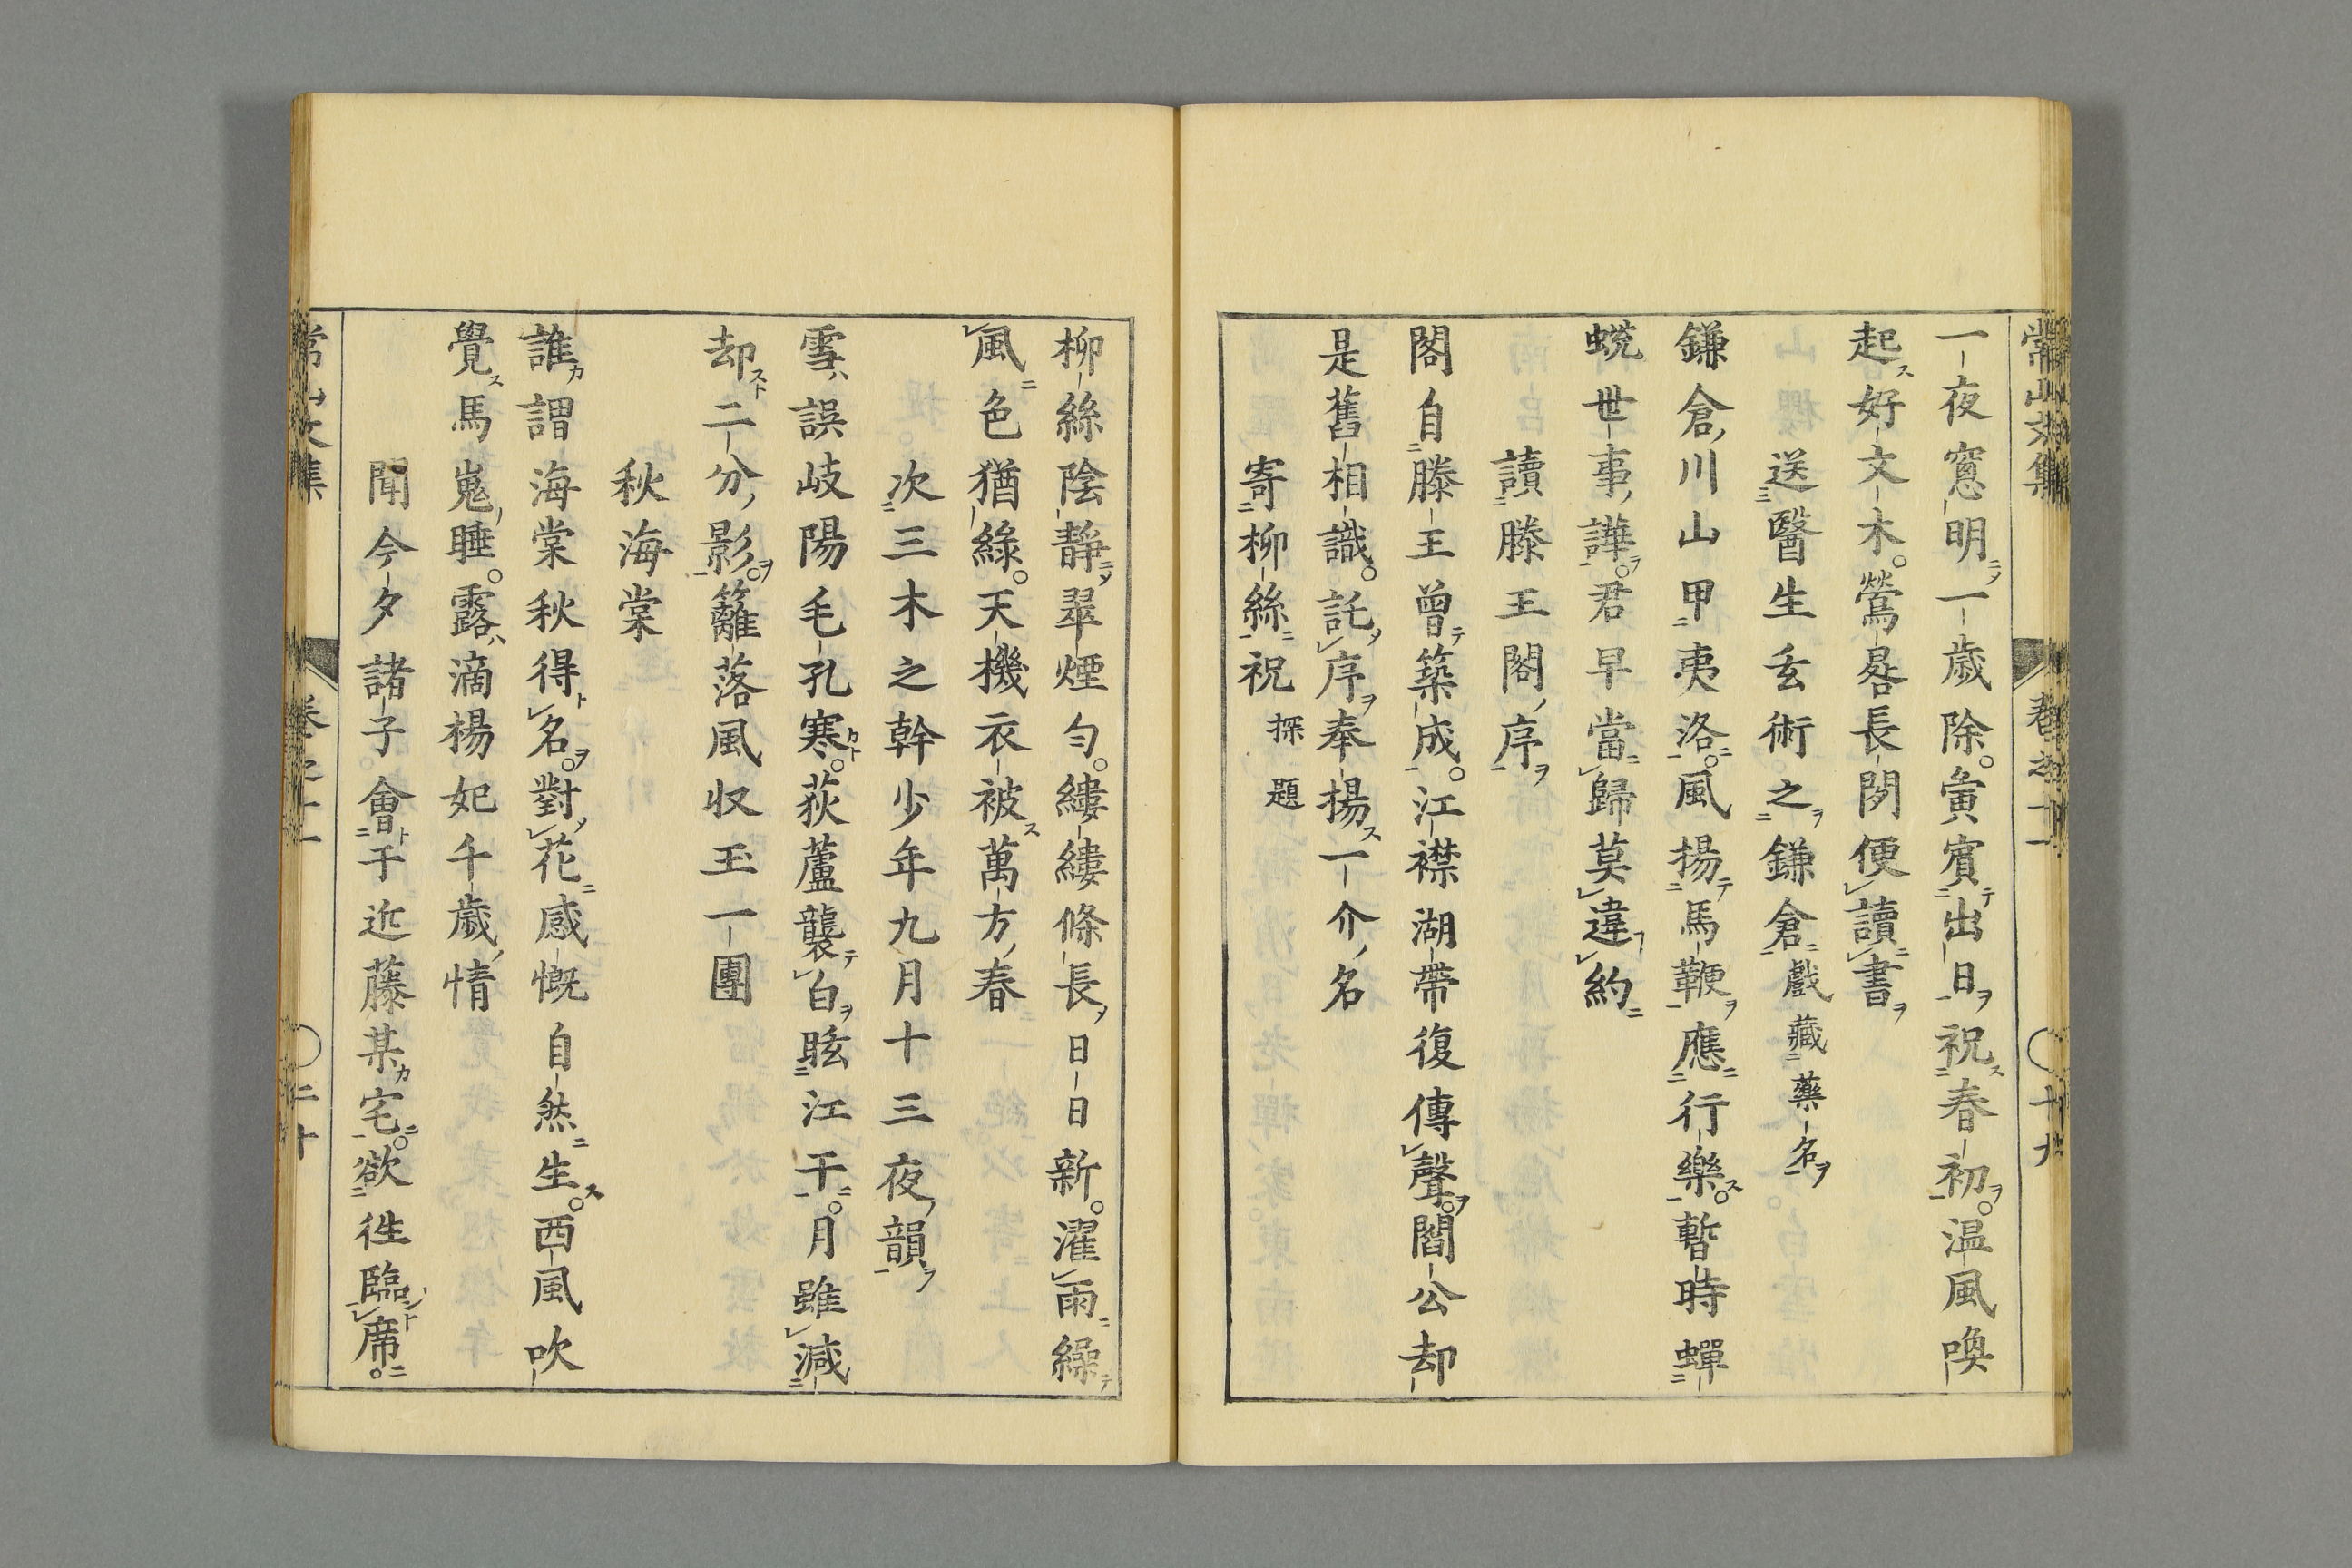 常山文集 卷之十一 〇十九
一夜窓明一歲除。寅賓出日祝春初。温風喚
起好文木。鶯晷長閑便讀書
送醫生玄術之鎌倉戲藏藥名
鎌倉川山甲夷洛。風揚馬鞭應行樂。暫時蟬
蛻世事譁。君早當歸莫違約
讀滕王閣序
閣自滕王曾築成。江襟湖帶復傳聲。閻公却
是舊相識。託序奉揚一介名
寄柳絲祝 探題
柳絲陰靜翠煙勻。縷縷條長日日新。濯雨繰
風色猶綠。天機衣被萬方春
次三木之幹少年九月十三夜韻
雪誤岐陽毛孔寒。荻蘆襲白眩江干。月雖減
却二分影。籬落風収玉一團
秋海棠
誰謂海棠秋得名。對花感慨自然生。西風吹
覺馬嵬睡。露滴楊妃千歲情
聞今夕諸子會于近藤某宅。欲徃臨席。
常山文集 卷之十一 〇二十